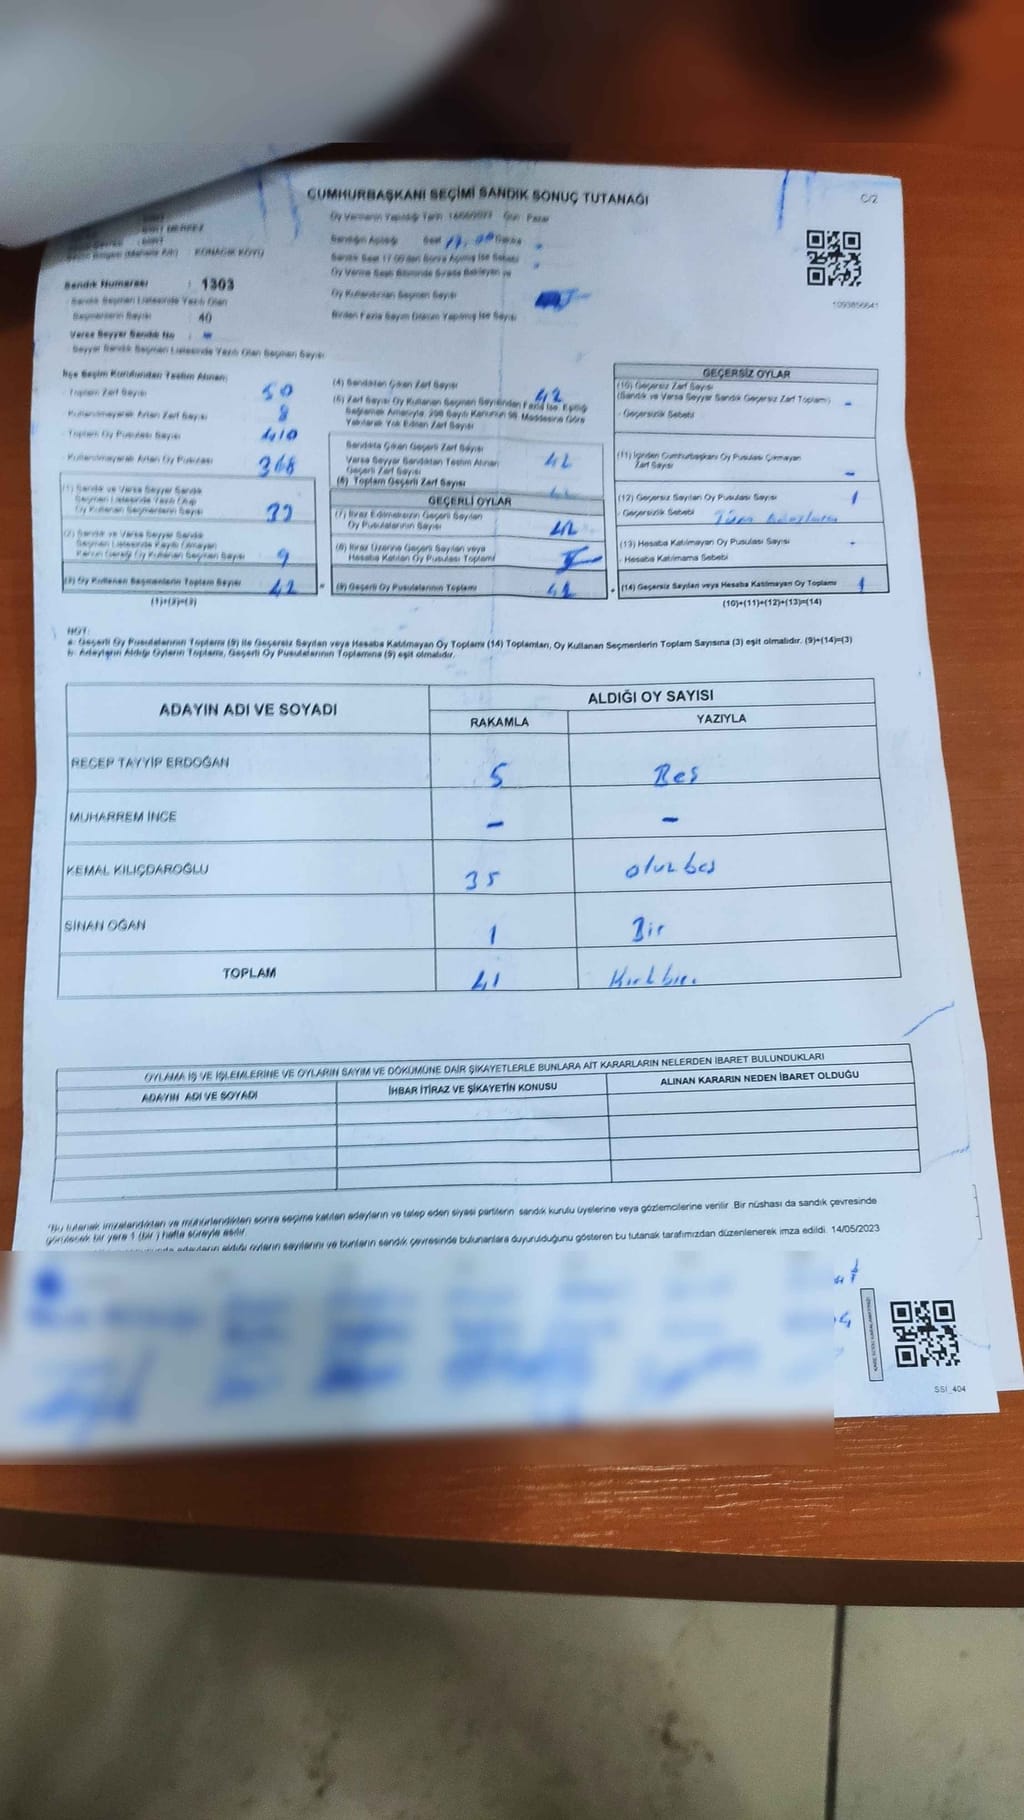 CUMHURBAŞKANI SEÇİMİ SANDIK SONUÇ TUTANAĞI
C/2
Oy Vermenin Yapıldığı Tarih 14/05/2023 Gün: Pazar
Sandığın Açıldığı Saat
KONACIK KÖYÜ
Sandık Saat 17.00'den Sonra Açılmış İse Sebebi
Oy Verme Saati Bitiminde Sırada Bekleyen ve
Oy Kullandırılan Seçmen Sayısı
Birden Fazla Sayım Döküm Yapılmış İse Sayısı
1093856641
Sandık Numarası : 1303
Sandık Seçmen Listesinde Yazılı Olan
Seçmenlerin Sayısı : 40
Varsa Seyyar Sandık No : -
Seyyar Sandık Seçmen Listesinde Yazılı Olan Seçmen Sayısı
İlçe Seçim Kurulundan Teslim Alınan;
- Toplam Zarf Sayısı 50
- Kullanılmayarak Artan Zarf Sayısı 8
- Toplam Oy Pusulası Sayısı 410
- Kullanılmayarak Artan Oy Pusulası 368
(1) Sandık ve Varsa Seyyar Sandık
Seçmen Listesinde Yazılı Olup
Oy Kullanan Seçmenlerin Sayısı
(2) Sandık ve Varsa Seyyar Sandık
Seçmen Listesinde Kayıtlı Olmayan
Kanun Gereği Oy Kullanan Seçmen Sayısı 9
(3) Oy Kullanan Seçmenlerin Toplam Sayısı 42
(1)+(2)=(3)
(4) Sandıktan Çıkan Zarf Sayısı 42
(5) Zarf Sayısı Oy Kullanan Seçmen Sayısından Fazla İse, Eşitliği
Sağlamak Amacıyla, 298 Sayılı Kanunun 98. Maddesine Göre
Yakılarak Yok Edilen Zarf Sayısı
Sandıkta Çıkan Geçerli Zarf Sayısı 42
Varsa Seyyar Sandıktan Teslim Alınan
Geçerli Zarf Sayısı
(6) Toplam Geçerli Zarf Sayısı
GEÇERLİ OYLAR
(7) İtiraz Edilmeksizin Geçerli Sayılan
Oy Pusulalarının Sayısı
(8) İtiraz Üzerine Geçerli Sayılan veya
Hesaba Katılan Oy Pusulası Toplamı
(9) Geçerli Oy Pusulalarının Toplamı 41
GEÇERSİZ OYLAR
(10) Geçersiz Zarf Sayısı
(Sandık ve Varsa Seyyar Sandık Geçersiz Zarf Toplamı) -
- Geçersizlik Sebebi
(11) İçinden Cumhurbaşkanı Oy Pusulası Çıkmayan
Zarf Sayısı -
(12) Geçersiz Sayılan Oy Pusulası Sayısı 1
- Geçersizlik Sebebi
(13) Hesaba Katılmayan Oy Pusulası Sayısı -
- Hesaba Katılmama Sebebi
(14) Geçersiz Sayılan veya Hesaba Katılmayan Oy Toplamı 1
(10)+(11)+(12)+(13)=(14)
NOT:
a- Geçerli Oy Pusulalarının Toplamı (9) ile Geçersiz Sayılan veya Hesaba Katılmayan Oy Toplamı (14) Toplamları, Oy Kullanan Seçmenlerin Toplam Sayısına (3) eşit olmalıdır. (9)+(14)=(3)
b- Adayların Aldığı Oyların Toplamı, Geçerli Oy Pusulalarının Toplamına (9) eşit olmalıdır.
ADAYIN ADI VE SOYADI
ALDIĞI OY SAYISI
RAKAMLA YAZIYLA
RECEP TAYYİP ERDOĞAN 5 Beş
MUHARREM İNCE - -
KEMAL KILIÇDAROĞLU 35 otuzbeş
SİNAN OĞAN 1 Bir
TOPLAM 41 Kırkbir.
OYLAMA İŞ VE İŞLEMLERİNE VE OYLARIN SAYIM VE DÖKÜMÜNE DAİR ŞİKAYETLERLE BUNLARA AİT KARARLARIN NELERDEN İBARET BULUNDUKLARI
ADAYIN ADI VE SOYADI İHBAR İTİRAZ VE ŞİKAYETİN KONUSU ALINAN KARARIN NEDEN İBARET OLDUĞU
*Bu tutanak imzalandıktan ve mühürlendikten sonra seçime katılan adayların ve talep eden siyasi partilerin sandık kurulu üyelerine veya gözlemcilerine verilir. Bir nüshası da sandık çevresinde
görülecek bir yere 1 (bir) hafta süreyle asılır.
adayların aldığı oyların sayılarını ve bunların sandık çevresinde bulunanlara duyurulduğunu gösteren bu tutanak tarafımızdan düzenlenerek imza edildi. 14/05/2023
SSI_404